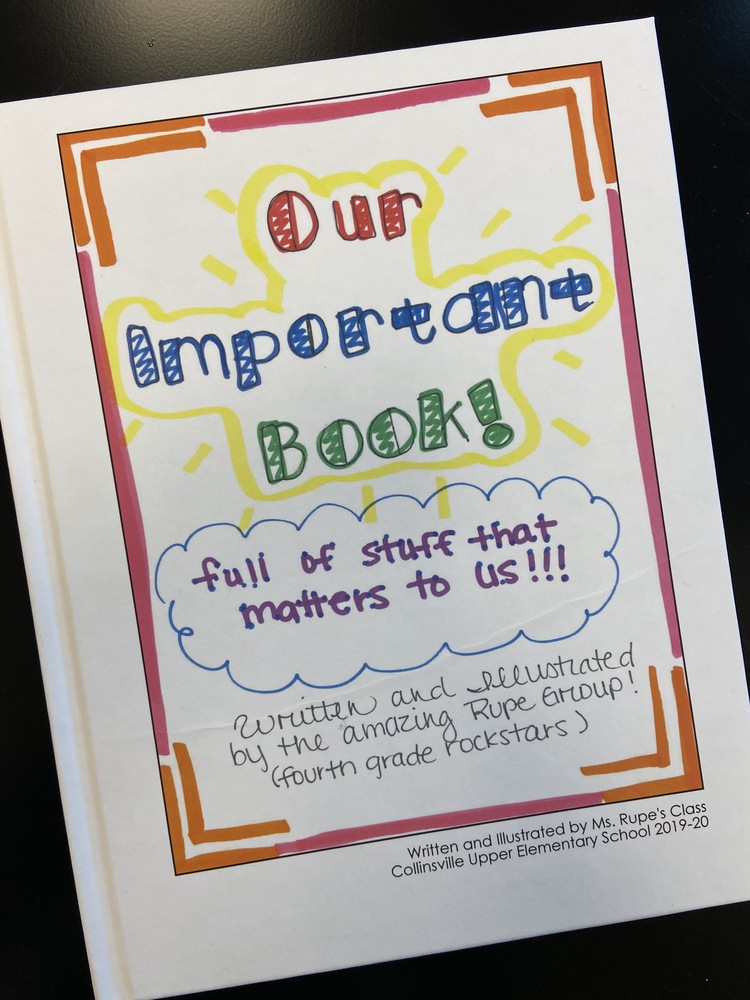 Our
Important
Book!
full of stuff that
matters to us!!!
Written and Illustrated
by the amazing Rupe Group!
(fourth grade rockstars)
Written and Illustrated by Ms. Rupe's Class
Collinsville Upper Elementary School 2019-20